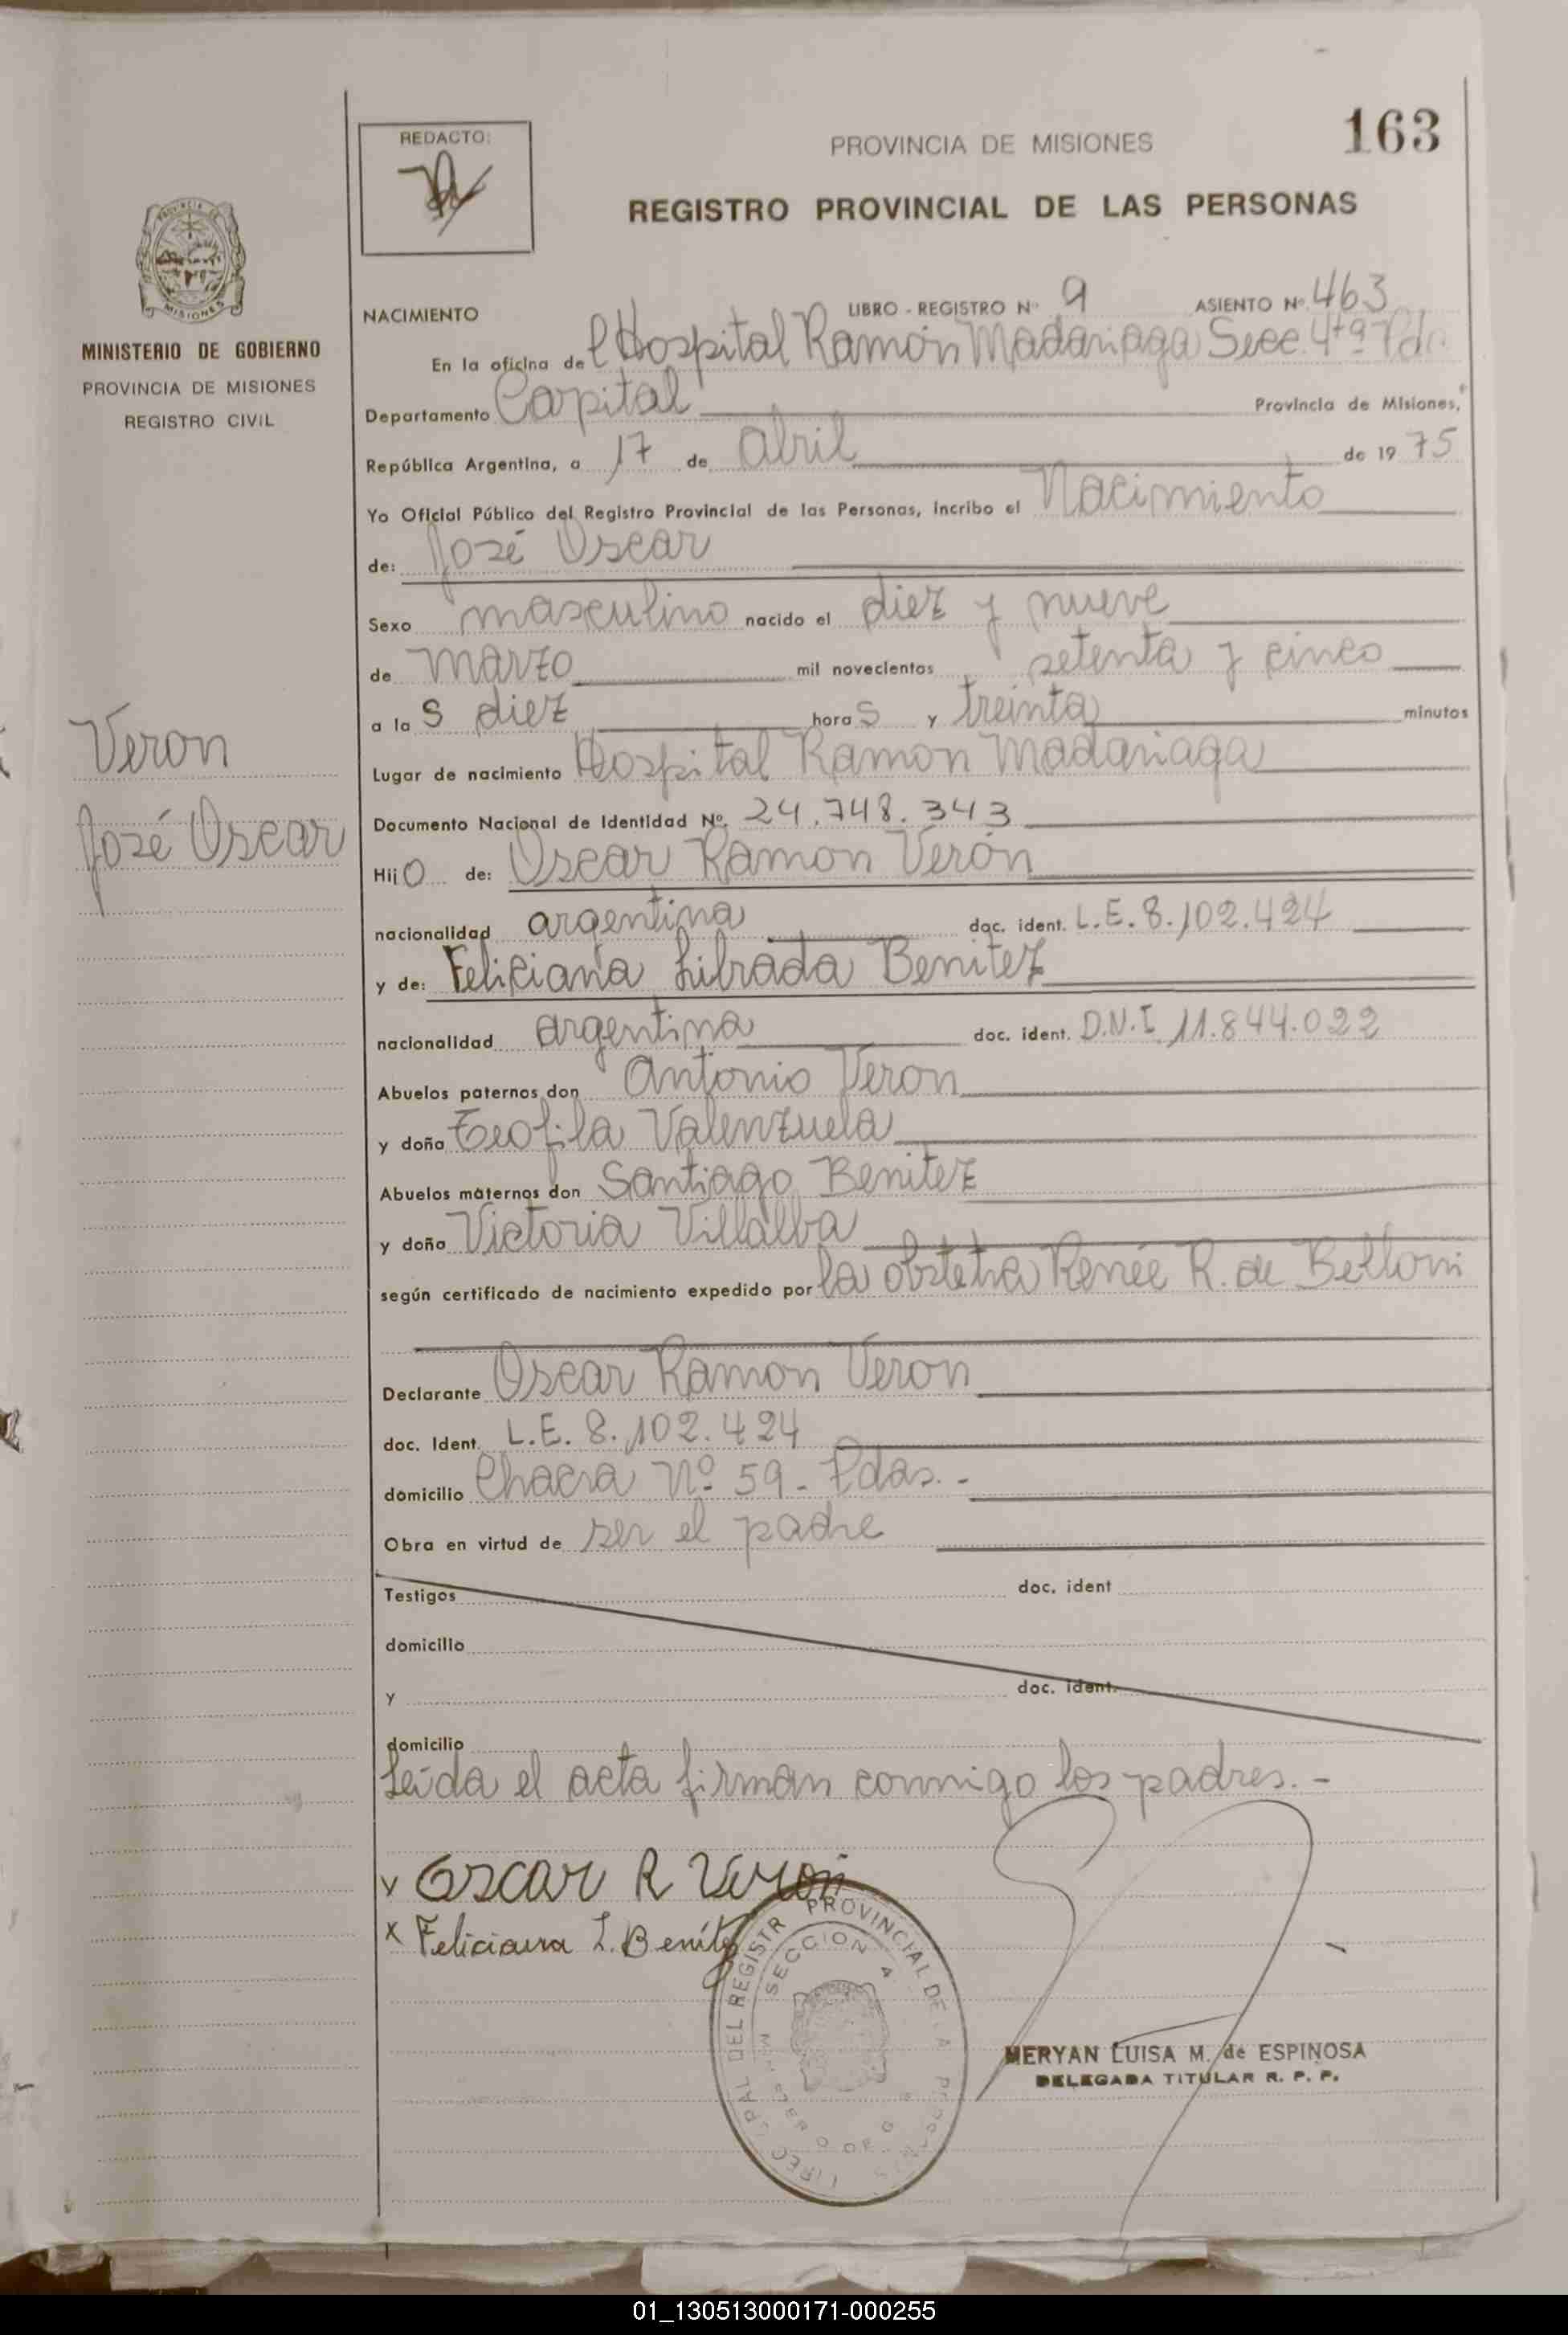 163
REDACTO:
PROVINCIA DE MISIONES
REGISTRO PROVINCIAL DE LAS PERSONAS
MINISTERIO DE GOBIERNO
PROVINCIA DE MISIONES
REGISTRO CIVIL
Veron
José Oscar
NACIMIENTO LIBRO - REGISTRO Nº 9 ASIENTO Nº 463
En la oficina del Hospital Ramón Madariaga Secc. 4tª
Departamento Capital Provincia de Misiones,
República Argentina, a 17 de abril de 1975
Yo Oficial Público del Registro Provincial de las Personas, inscribo el Nacimiento
de: José Oscar
Sexo masculino nacido el diez y nueve
de marzo mil novecientos setenta y cinco
a las diez horas y treinta minutos
Lugar de nacimiento Hospital Ramon Madariaga
Documento Nacional de Identidad Nº. 24.748.343
Hijo de: Oscar Ramon Verón
nacionalidad argentina doc. ident. L.E. 8.102.424
y de: Feliciana Librada Benitez
nacionalidad argentina doc. ident. D.N.I 11.844.022
Abuelos paternos don Antonio Veron
y doña Teofila Valenzuela
Abuelos maternos don Santiago Benitez
y doña Victoria Villalba
según certificado de nacimiento expedido por la obstetra Renée R. de Belloni
Declarante Oscar Ramon Veron
doc. Ident. L.E. 8.102.424
domicilio Chacra Nº 59 - Pdas. -
Obra en virtud de ser el padre
Testigos doc. ident
domicilio
y doc. ident.
domicilio
Leída el acta firman conmigo los padres. -
v Oscar R Veron
x Feliciana L. Benítez
PROVINCIAL DE
DEL REGISTR
SECCION 4
MERYAN LUISA M. de ESPINOSA
DELEGADA TITULAR R. P. P.
01_130513000171-000255